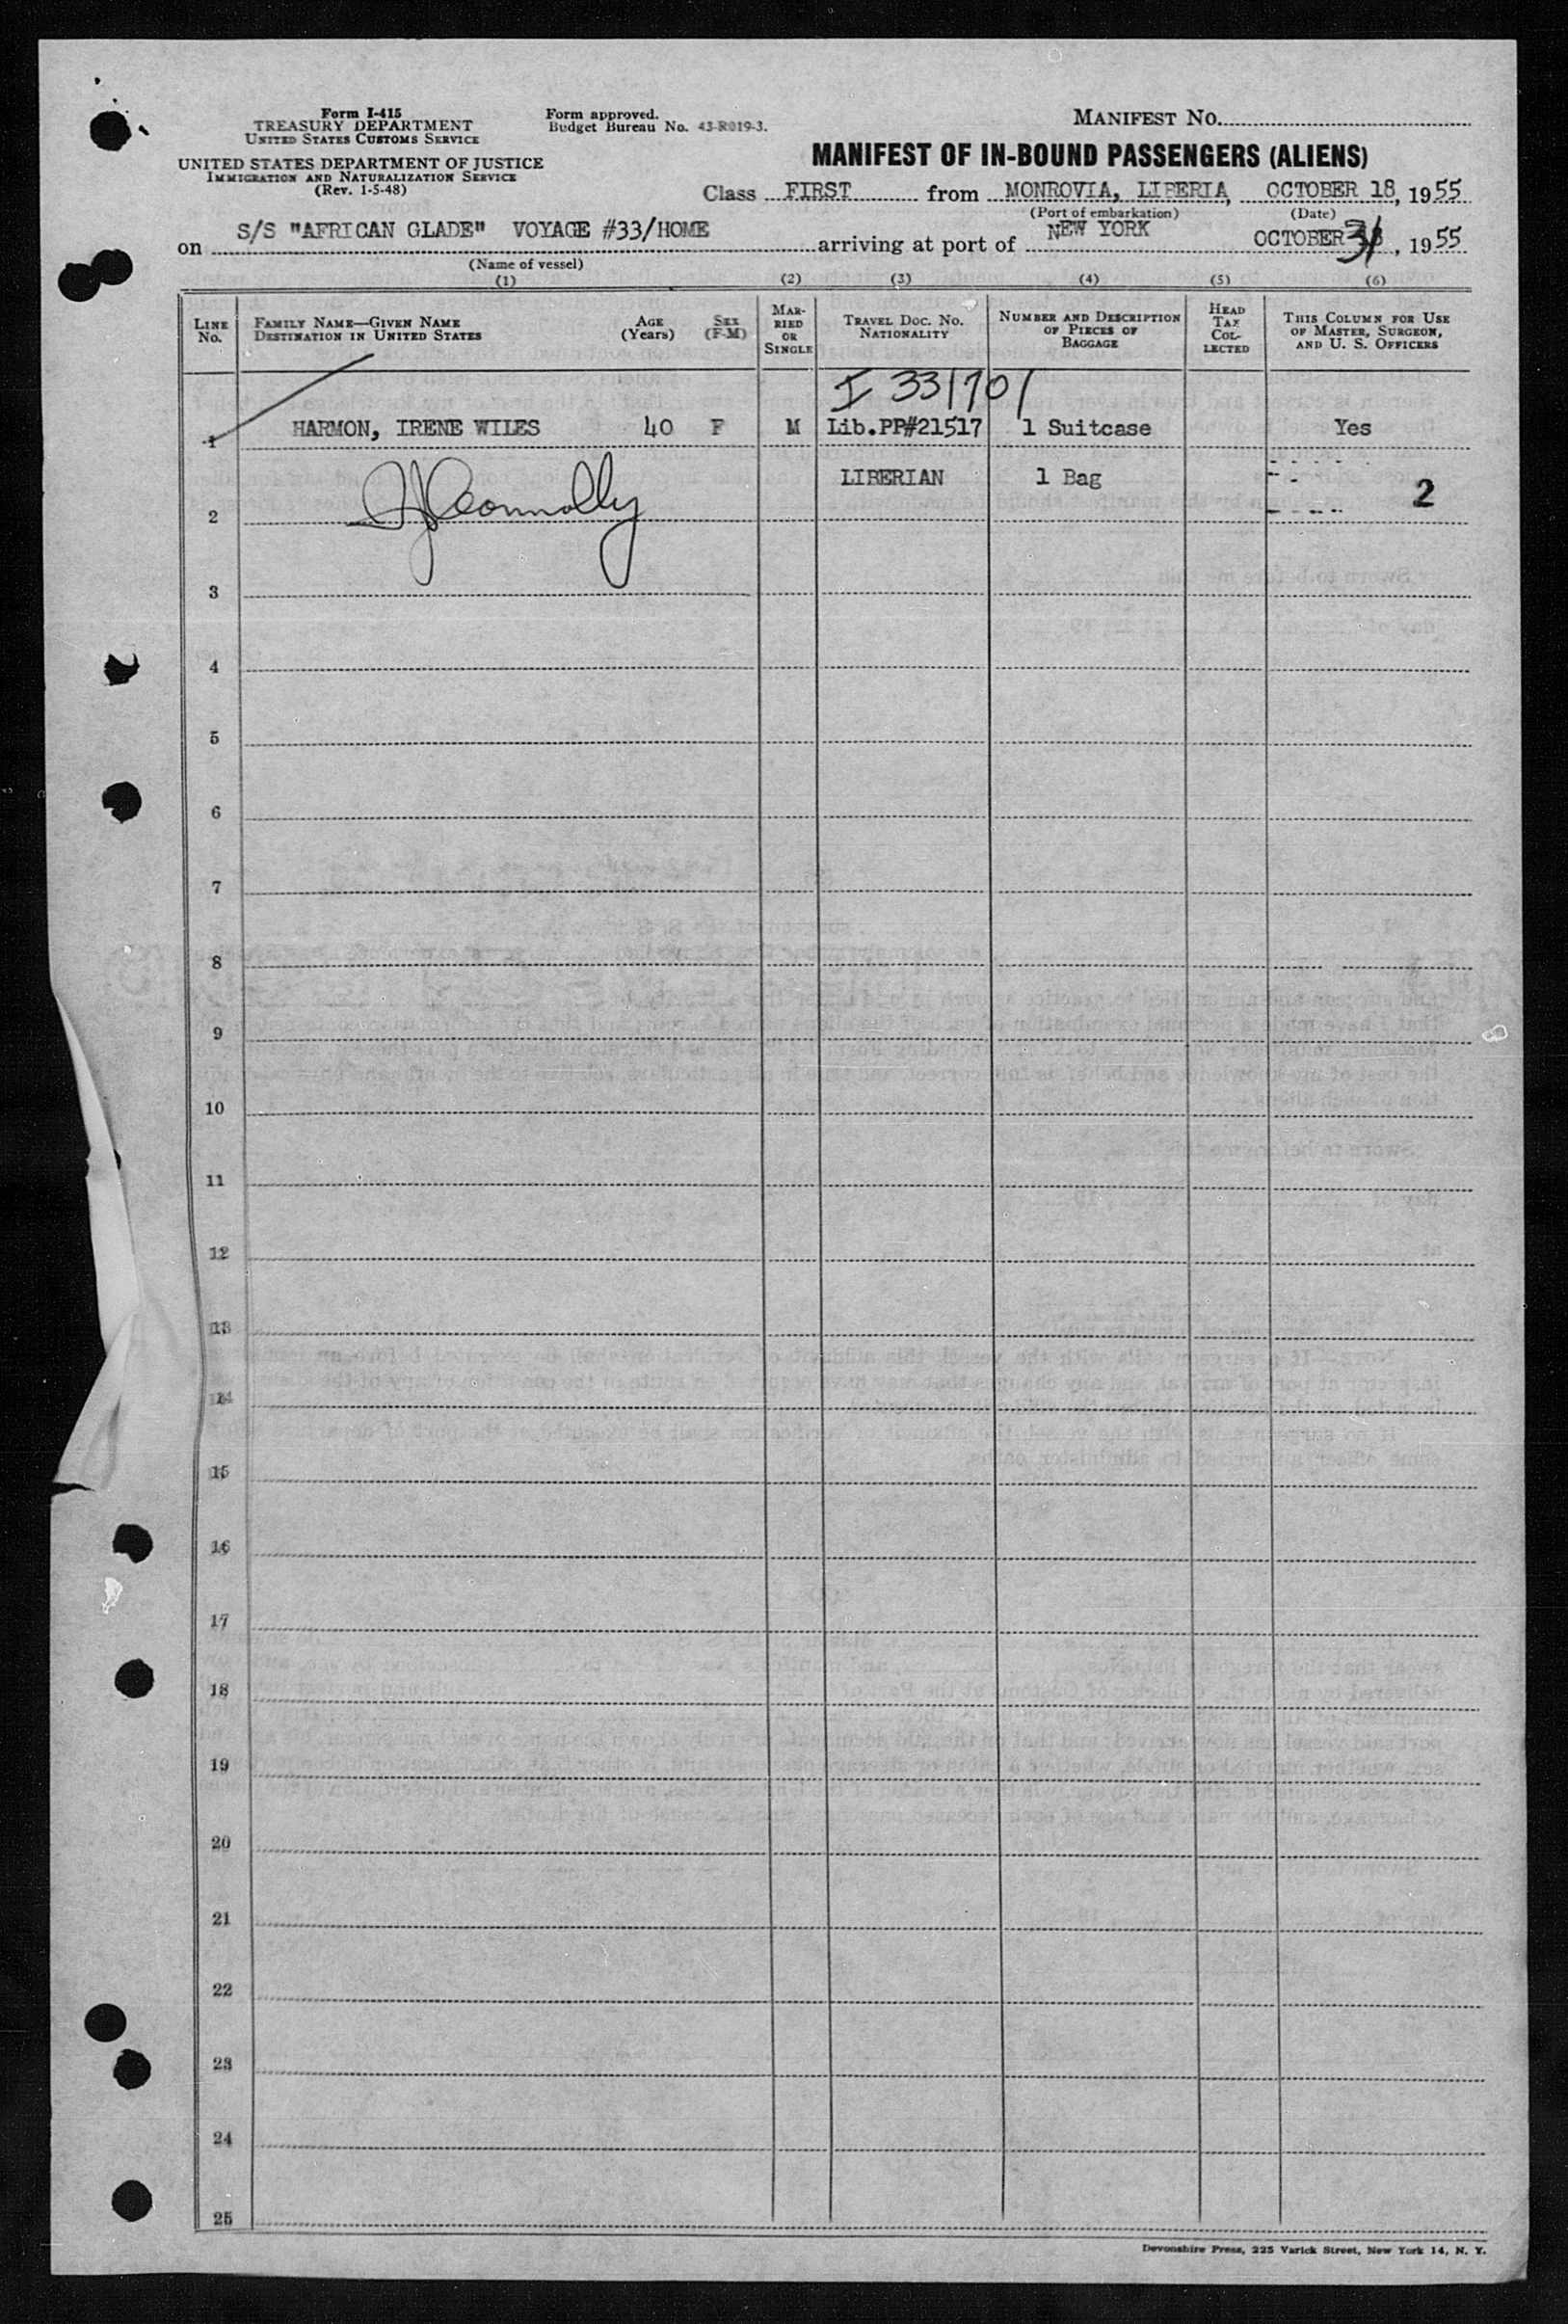 Form I-415
TREASURY DEPARTMENT
UNITED STATES CUSTOMS SERVICE
UNITED STATES DEPARTMENT OF JUSTICE
IMMIGRATION AND NATURALIZATION SERVICE
(Rev. 1-5-48)
Form approved.
Budget Bureau No. 43-R019-3.
MANIFEST NO.
MANIFEST OF IN-BOUND PASSENGERS (ALIENS)
Class FIRST from MONROVIA, LIBERIA, OCTOBER 18, 1955
(Port of embarkation) (Date)
on S/S "AFRICAN GLADE" VOYAGE #33/HOME arriving at port of NEW YORK OCTOBER 31, 1955
(Name of vessel)
(1) (2) (3) (4) (5) (6)
LINE No.
FAMILY NAME—GIVEN NAME
DESTINATION IN UNITED STATES
AGE (Years)
SEX (F-M)
MARRIED OR SINGLE
TRAVEL DOC. NO. NATIONALITY
NUMBER AND DESCRIPTION OF PIECES OF BAGGAGE
HEAD TAX COLLECTED
THIS COLUMN FOR USE OF MASTER, SURGEON, AND U. S. OFFICERS
I 331701
1 HARMON, IRENE WILES 40 F M Lib.PP#21517 1 Suitcase Yes
LIBERIAN 1 Bag
2 Connolly 2
3
4
5
6
7
8
9
10
11
12
13
14
15
16
17
18
19
20
21
22
23
24
25
Devonshire Press, 225 Varick Street, New York 14, N. Y.